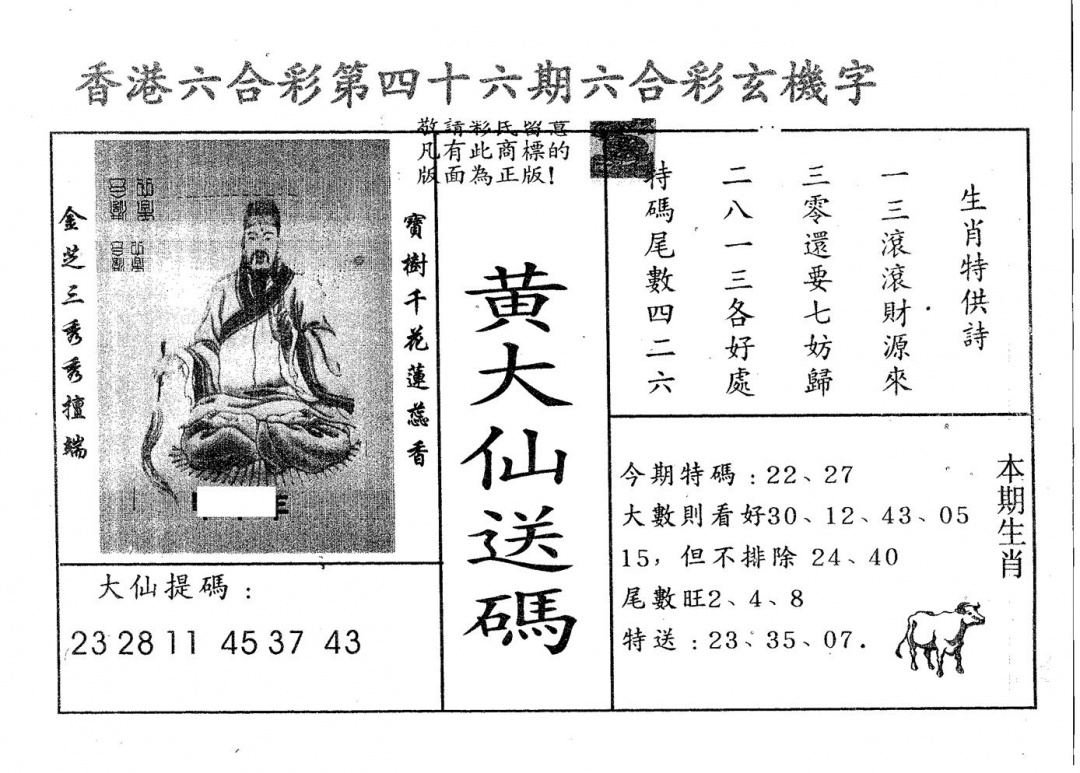 香港六合彩第四十六期六合彩玄機字
敬請彩民留意
凡有此商標的
版面為正版!
寶樹千花蓮蕊香
金芝三秀秀擅端
大仙提碼:
23 28 11 45 37 43
黃大仙送碼
生肖特供詩
一三滾滾財源來
三零還要七妨歸
二八一三各好處
特碼尾數四二六
本期生肖
今期特碼:22、27
大數則看好30、12、43、05
15,但不排除 24、40
尾數旺2、4、8
特送:23、35、07.